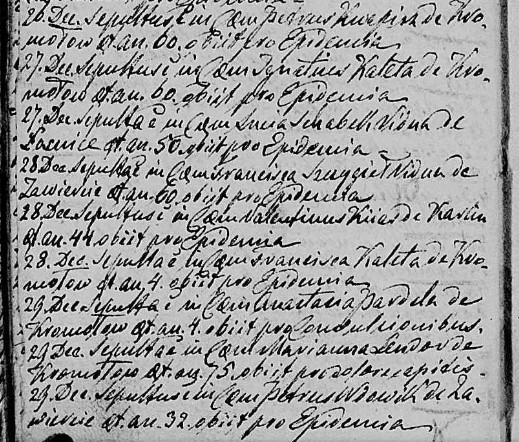 26. Dec. Sepultus ē in Cœm Petrus Kwapisz de Kro-
motow æt. an. 60. obiit pro Epidemia
27. Dec. Sepultus ē in Cœm Ignatius Kaleta de Kro-
motow æt. an. 60. obiit pro Epidemia
27. Dec. Sepulta ē in Cœm Lucia Vidua de
Łącnice æt. an. 50. obiit pro Epidemia
28 Dec. Sepulta ē in Cœm Francisca Vidua de
Zawiercie æt. an. 60. obiit pro Epidemia
28. Dec. Sepultus ē in Cœm Valentinus de Karlin
æt. an. 44. obiit pro Epidemia
28. Dec. Sepulta ē in Cœm Francisca Kaleta de Kro-
motow æt. an. 4. obiit pro Epidemia
29. Dec. Sepulta ē in Cœm Anastasia Pardela de
Kromotow æt. an. 4. obiit pro Consulcionibus.
29 Dec. Sepulta ē in Cœm Marianna de
Kromotow æt. an. 75. obiit pro dolore capitis.
29. Dec. Sepultus in Cœm Petrus Wdowik de Za-
wiercie æt. an. 32. obiit pro Epidemia